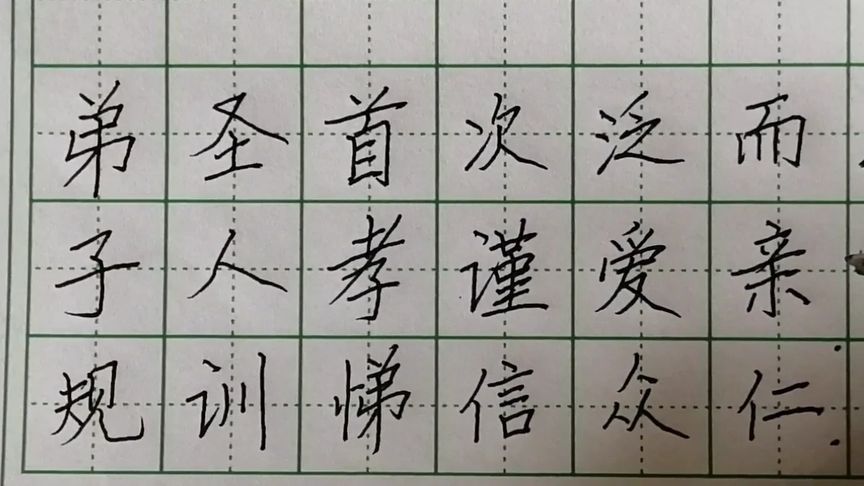 弟子规
圣人训
首孝悌
次谨信
泛爱众
而亲仁